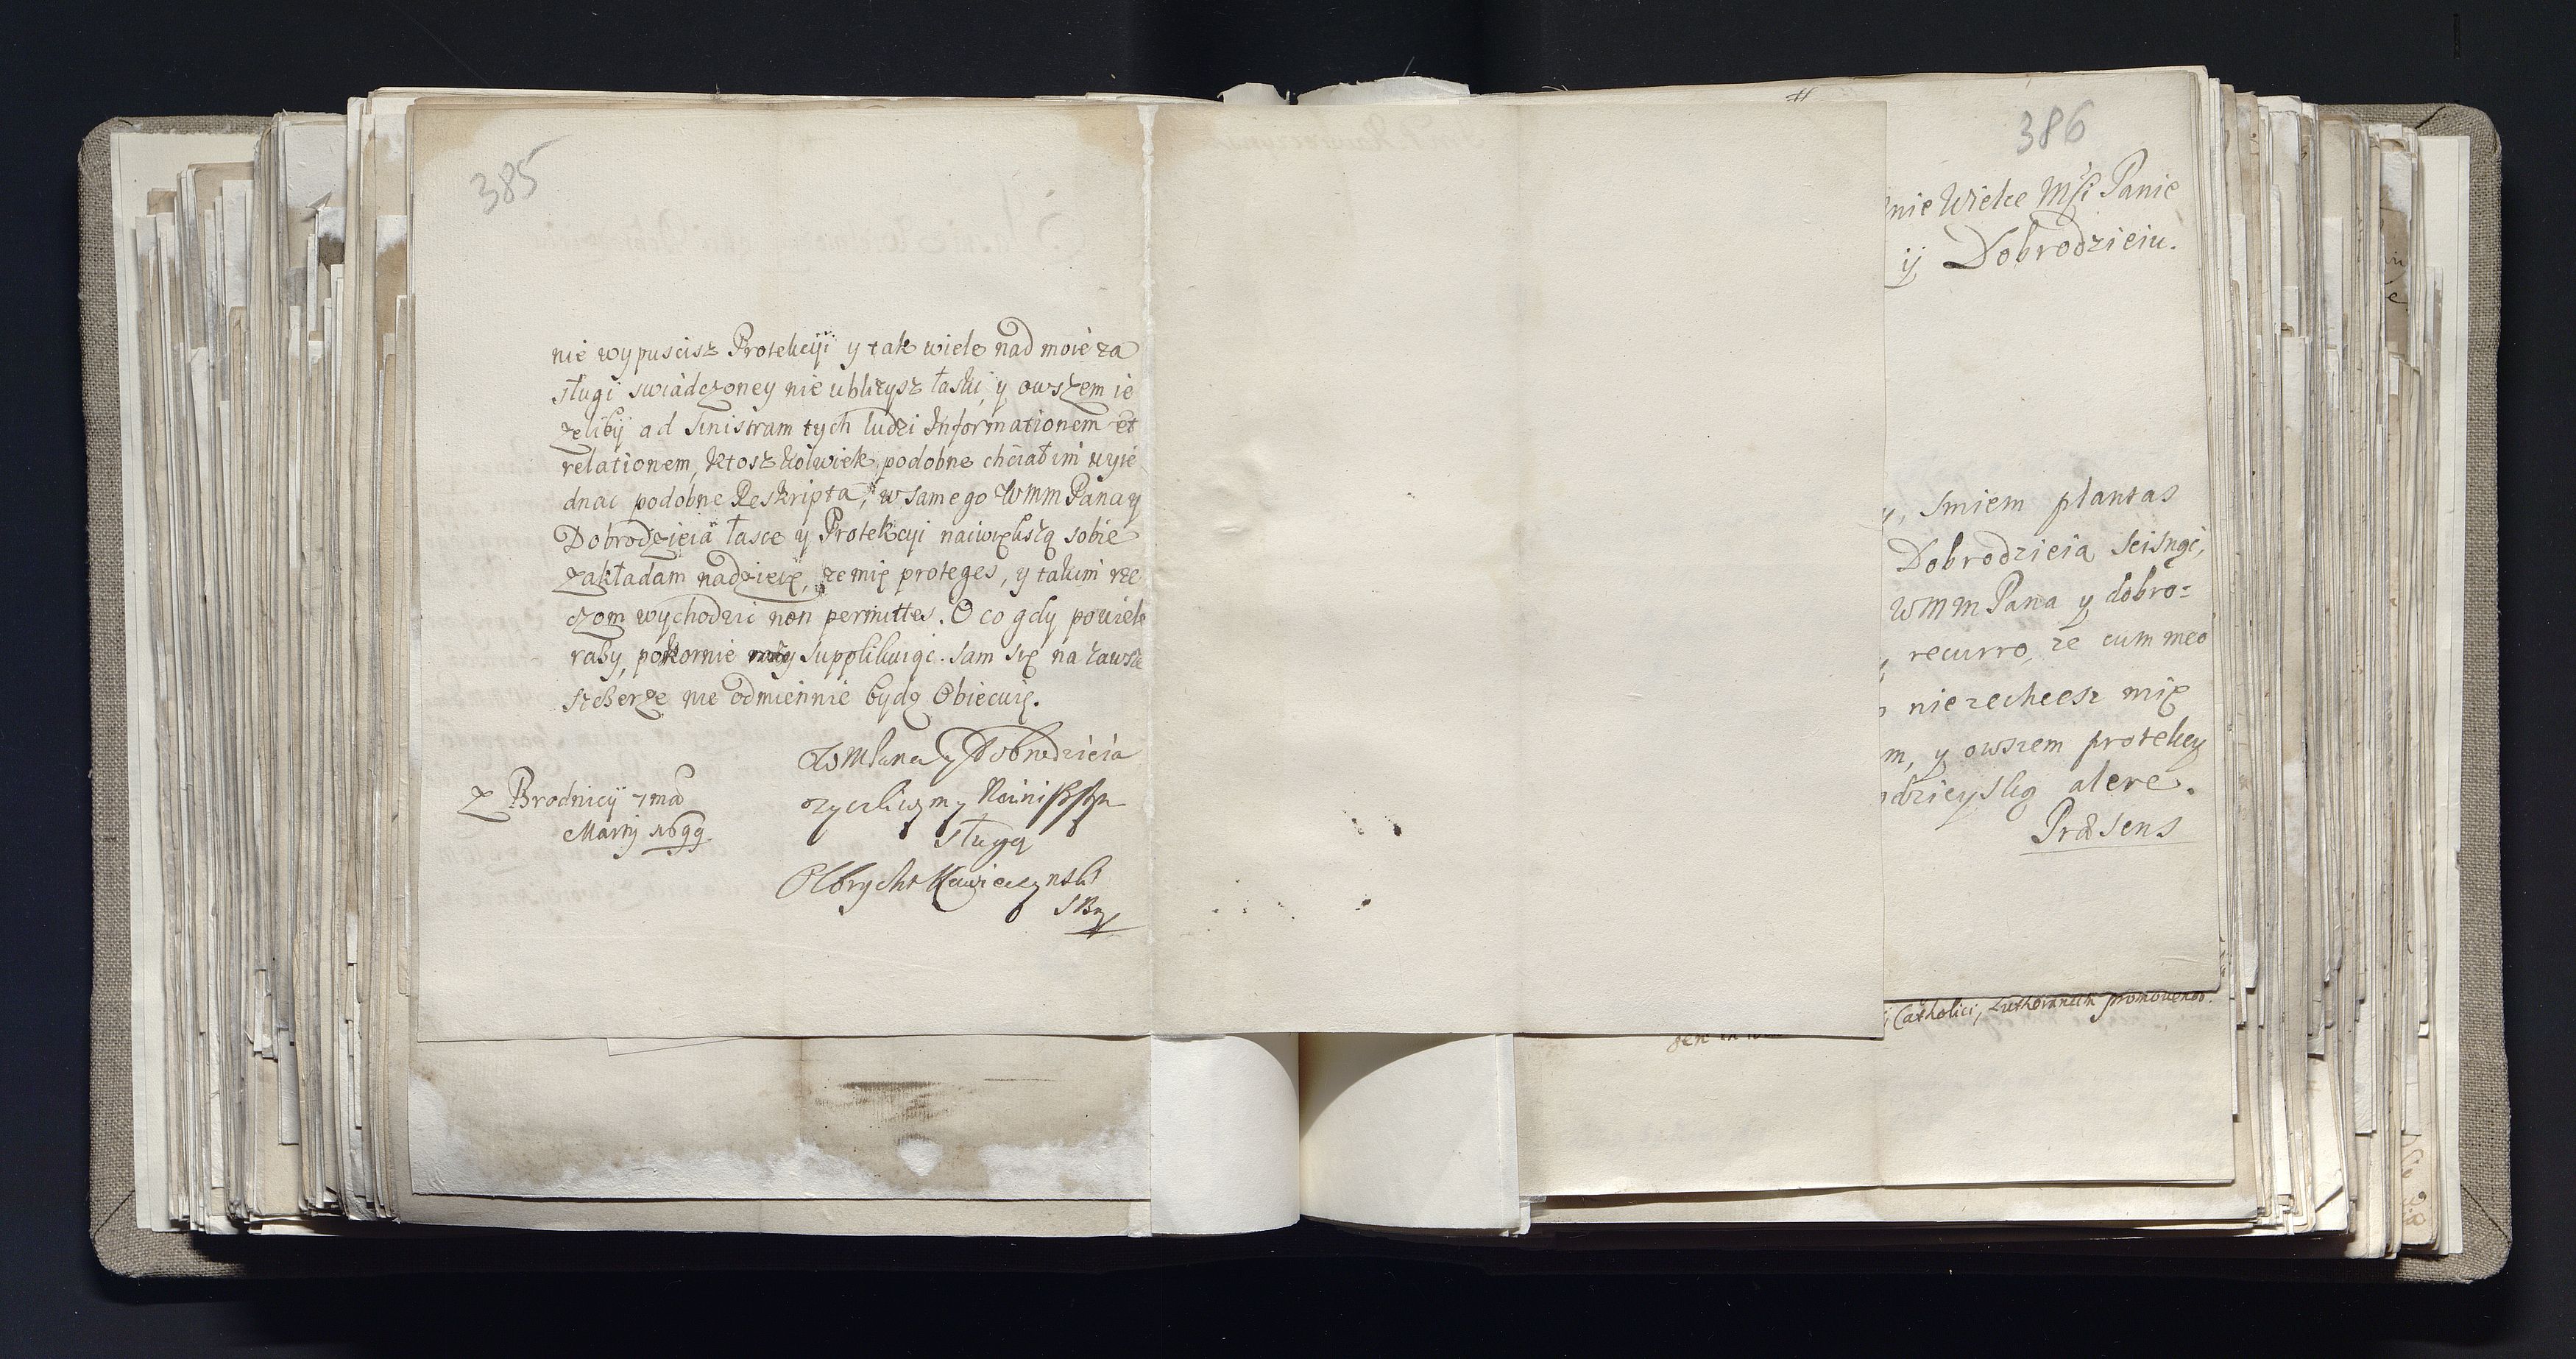 385
nie wypuscisz Protekcÿi y tak wiele nad moie za
sługi swiadczoney nie ubliżysz łaski, y owszem ie
zelibÿ ad Sinistram tych ludzi Informationem et
relationem, Ktoszkolwiek podobne chciał im wyie
dnac podobne Reskripta, w samego WMM Pana y
Dobrodzieia łasce y Protekcyi naiwięksżą sobie
zakładam nadzieię, ze mię proteges, y takim rze
czom wychodzic non permittes. O co gdy powiele
raby, pokornie supplikuiąc. Sam się na zawsze
szcżerze nie odmiennie bydz Obiecuię.
WMPana y Dobrodzieia
zyczliwym y
sługą
Olbrycht Kawieczynski
Z Brodnicÿ 7ma
Martij 1699.
386
mnie Wielce Mśći Panie
ÿ Dobrodzieiu.
y, smiem plantas
Dobrodzieia scisnąć,
WMM Pana y dobro=
recurro, że cum meo
niezechcesz mię
m, y owszem protekcy
dzieyską alere.
Præsens
i Catholici, Lutheranum promouendo.